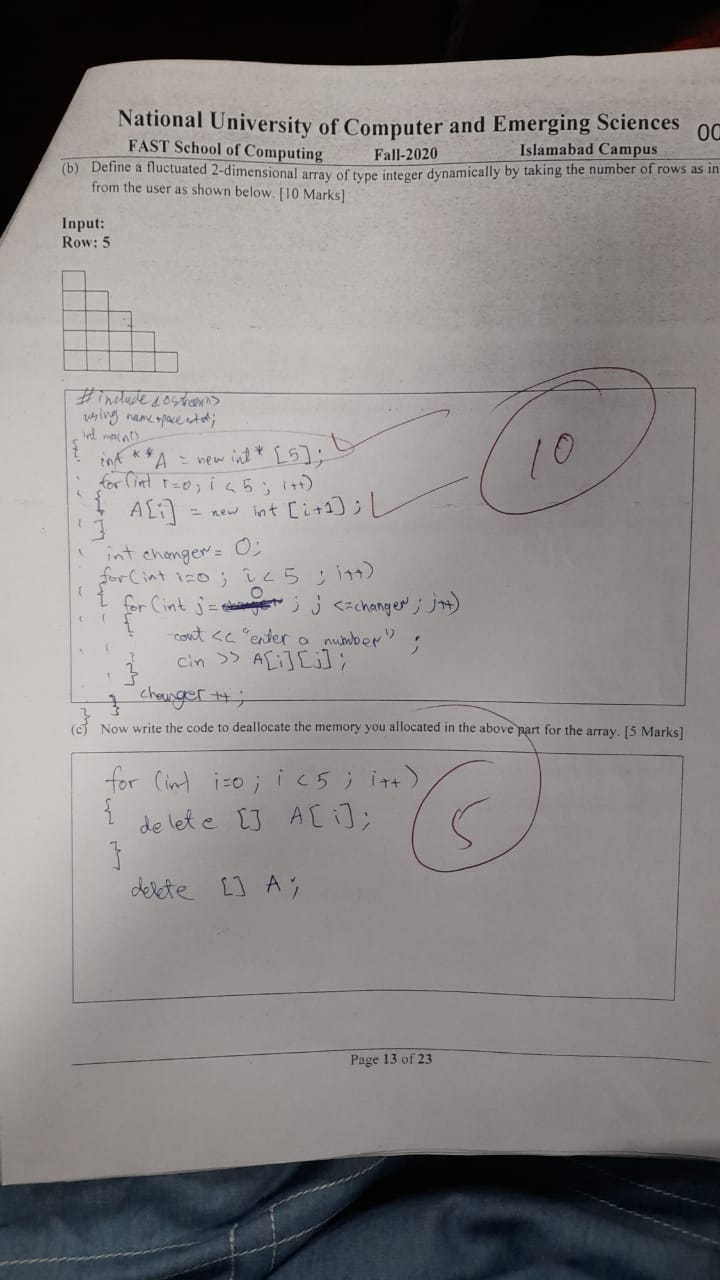 National University of Computer and Emerging Sciences 00
FAST School of Computing Fall-2020 Islamabad Campus
(b) Define a fluctuated 2-dimensional array of type integer dynamically by taking the number of rows as in
from the user as shown below. [10 Marks]
Input:
Row: 5
#include <ostream>
using namespace std;
int main()
{ int **A = new int* [5];
for (int i=0; i<5; i++)
{ A[i] = new int [i+1];
}
int changer = 0;
for (int i=0; i<5; i++)
{ for (int j= 0; j <=changer; j++)
{
cout << "enter a number";
cin >> A[i][j];
}
changer++;
}
}
10
(c) Now write the code to deallocate the memory you allocated in the above part for the array. [5 Marks]
for (int i=0; i<5; i++)
{ delete [] A[i];
}
delete [] A;
5
Page 13 of 23